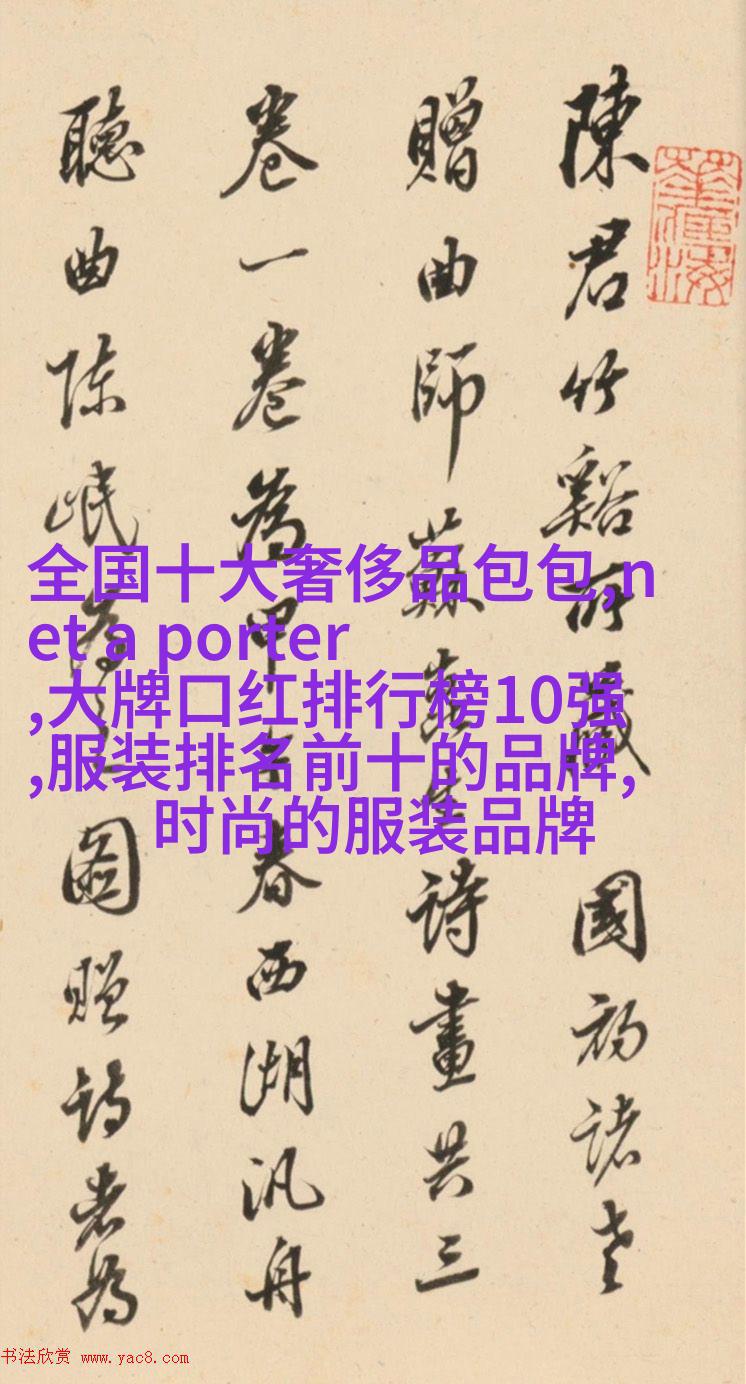 陳君竹谿所藏國初諸老
贈曲師蘇崑生詩畫共三
卷一卷為甲春西湖汎舟
聽曲陈岷為之圖贈詩者為
全国十大奢侈品包包,n
et a porter
,大牌口红排行榜10强
,服装排名前十的品牌,
时尚的服装品牌
书法欣赏 www.yac8.com